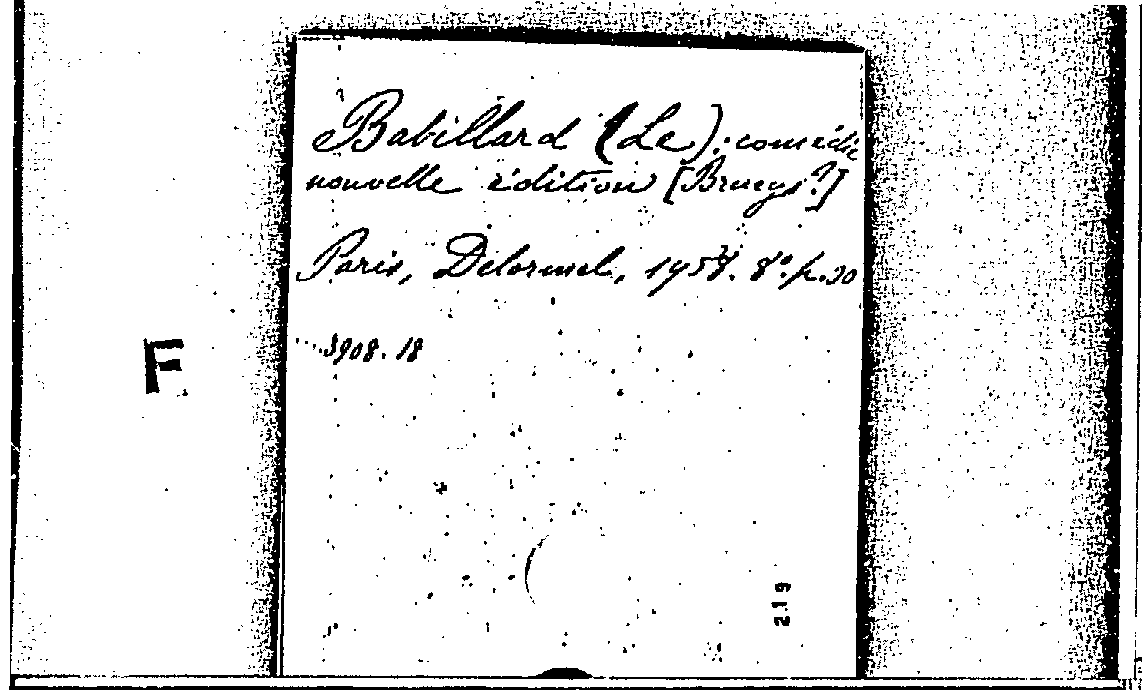 Babillard (Le); comédie
nouvelle édition [Brueys?]
Paris, Delormel, 1758. 8º. p. 30
3908.18
F
219